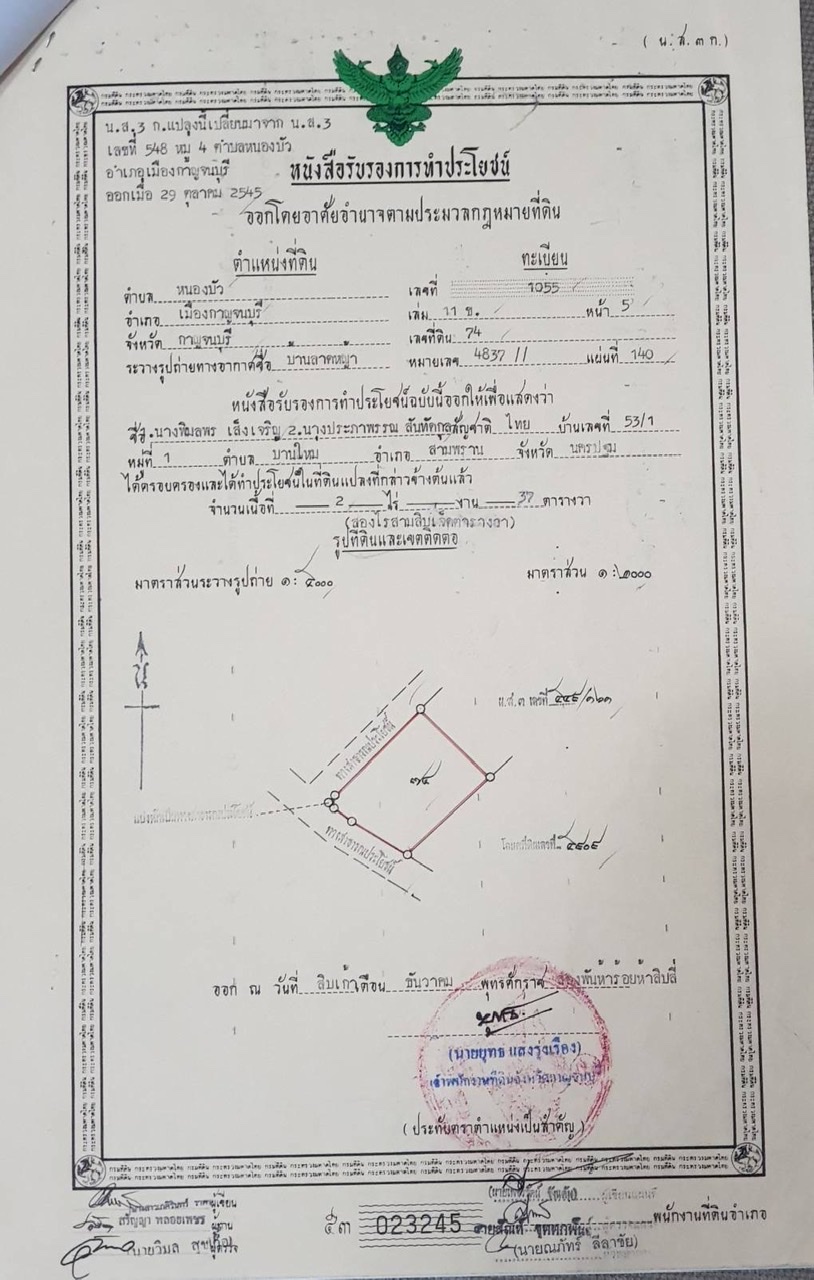 ( น.ส.๓ ก.)
น.ส.3 ก.แปลงนี้เปลี่ยนมาจาก น.ส.3
เลขที่ 548 หมู่ 4 ตำบลหนองบัว
อำเภอเมืองกาญจนบุรี
ออกเมื่อ 29 ตุลาคม 2545
หนังสือรับรองการทำประโยชน์
ออกโดยอาศัยอำนาจตามประมวลกฎหมายที่ดิน
ตำแหน่งที่ดิน ทะเบียน
ตำบล หนองบัว เลขที่ 1055
อำเภอ เมืองกาญจนบุรี เล่ม 11 ข. หน้า 5
จังหวัด กาญจนบุรี เลขที่ดิน 74
ระวางรูปถ่ายทางอากาศชื่อ บ้านลาดหญ้า หมายเลข 4837 II แผ่นที่ 140
หนังสือรับรองการทำประโยชน์ฉบับนี้ออกให้เพื่อแสดงว่า
ชื่อ 1.นางพิมลพร เส็งเจริญ 2.นางประภาพรรณ สัญชาติ ไทย บ้านเลขที่ 53/1
หมู่ที่ 1 ตำบล บ้านใหม่ อำเภอ สามพราน จังหวัด นครปฐม
ได้ครอบครองและได้ทำประโยชน์ในที่ดินแปลงที่กล่าวข้างต้นแล้ว
จำนวนเนื้อที่ 2 ไร่ งาน 37 ตารางวา
(สองไร่สามสิบเจ็ดตารางวา)
รูปที่ดินและเขตติดต่อ
มาตราส่วนระวางรูปถ่าย ๑ : ๕๐๐๐ มาตราส่วน ๑ : ๒๐๐๐
น
น.ส.๓ เลขที่
ทางสาธารณประโยชน์
๗๔
แบ่งหักเป็นทางสาธารณประโยชน์
ทางสาธารณประโยชน์
โฉนดที่ดินเลขที่
ออก ณ วันที่ สิบเก้า เดือน ธันวาคม พุทธศักราช สองพันห้าร้อยห้าสิบสี่
(นายยุทธ แสงรุ่งเรือง)
เจ้าพนักงานที่ดินจังหวัดกาญจนบุรี
(ประทับตราตำแหน่งเป็นสำคัญ)
ผู้เขียน
ผู้เขียนแผนที่
ผู้ทาน
๕๓ 023245
พนักงานที่ดินอำเภอ
นายวิมล ผู้ตรวจ
(นายณภัทร์ ลีลาชัย)